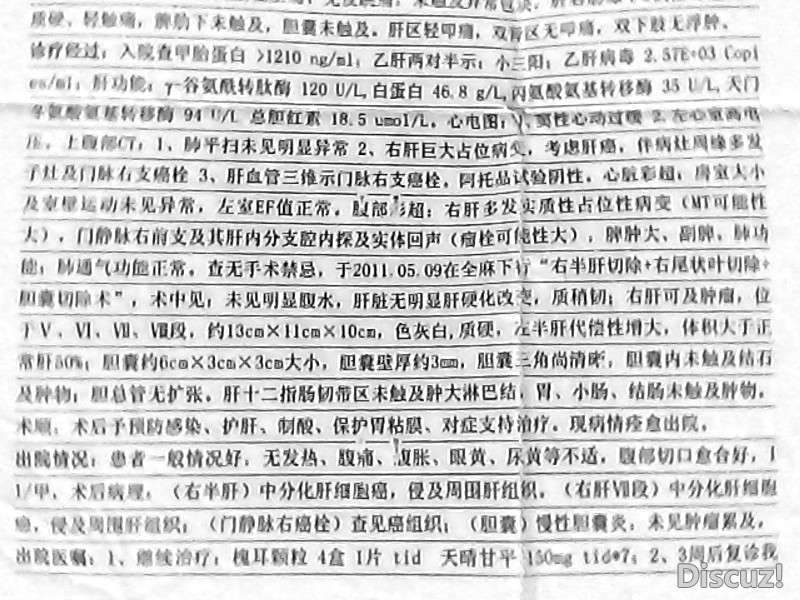 质硬，轻触痛，脾肋下未触及，胆囊未触及。肝区轻叩痛，双肾区无叩痛，双下肢无浮肿。
诊疗经过：入院查甲胎蛋白 >1210 ng/ml；乙肝两对半示：小三阳；乙肝病毒 2.57E+03 Copi
es/ml；肝功能：γ-谷氨酰转肽酶 120 U/L,白蛋白 46.8 g/L,丙氨酸氨基转移酶 35 U/L,天门
冬氨酸氨基转移酶 94 U/L 总胆红素 18.5 umol/L。心电图：1.窦性心动过缓 2.左心室高电
压。上腹部CT：1、肺平扫未见明显异常 2、右肝巨大占位病变，考虑肝癌，伴病灶周缘多发
子灶及门脉右支癌栓 3、肝血管三维示门脉右支癌栓。阿托品试验阴性。心脏彩超：房室大小
及室壁运动未见异常，左室EF值正常。腹部彩超：右肝多发实质性占位性病变（MT可能性
大），门静脉右前支及其肝内分支腔内探及实体回声（瘤栓可能性大），脾肿大、副脾。肺功
能：肺通气功能正常。查无手术禁忌，于2011.05.09在全麻下行“右半肝切除+右尾状叶切除+
胆囊切除术”，术中见：未见明显腹水，肝脏无明显肝硬化改变，质稍韧；右肝可及肿瘤，位
于Ⅴ、Ⅵ、Ⅶ、Ⅷ段，约13cm×11cm×10cm，色灰白,质硬，左半肝代偿性增大，体积大于正
常肝50%；胆囊约6cm×3cm×3cm大小，胆囊壁厚约3mm，胆囊三角尚清晰，胆囊内未触及结石
及肿物；胆总管无扩张。肝十二指肠韧带区未触及肿大淋巴结，胃、小肠、结肠未触及肿物。
术顺，术后予预防感染、护肝、制酸、保护胃粘膜、对症支持治疗。现病情痊愈出院。
出院情况：患者一般情况好，无发热、腹痛、腹胀、眼黄、尿黄等不适，腹部切口愈合好，I
I/甲。术后病理：（右半肝）中分化肝细胞癌，侵及周围肝组织。（右肝Ⅷ段）中分化肝细胞
癌，侵及周围肝组织；（门静脉右癌栓）查见癌组织；（胆囊）慢性胆囊炎，未见肿瘤累及。
出院医嘱：1、继续治疗：槐耳颗粒 4盒 1片 tid 天晴甘平 150mg tid*7；2、3周后复诊我
Discuz!